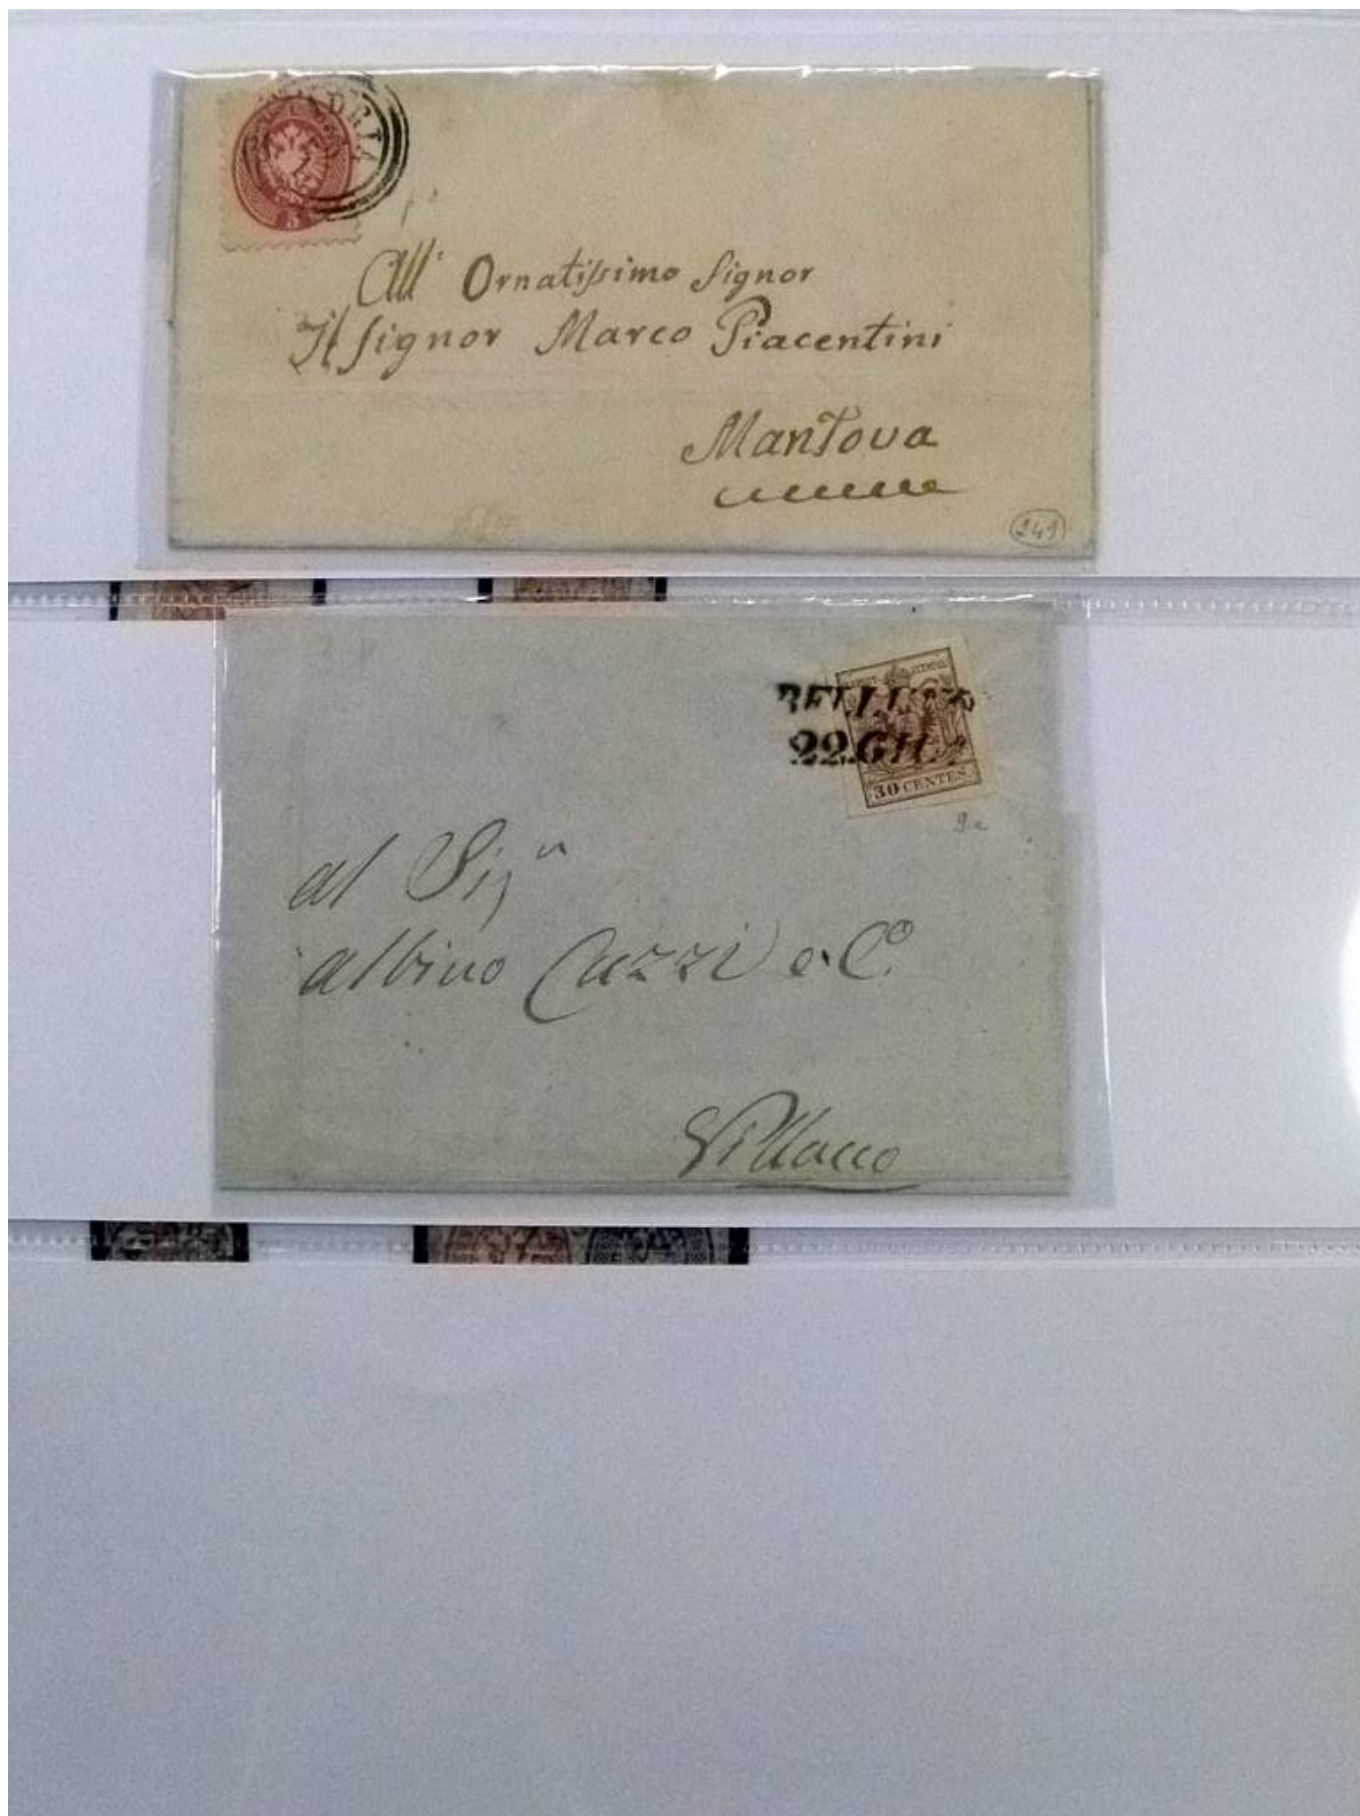 5
All' Ornatissimo Signor
Il Signor Marco Piacentini
Mantova
249
BELLUNO
22.GIU.
30 CENTES
al Sigr
albino Cazzi e Co.
Villacco